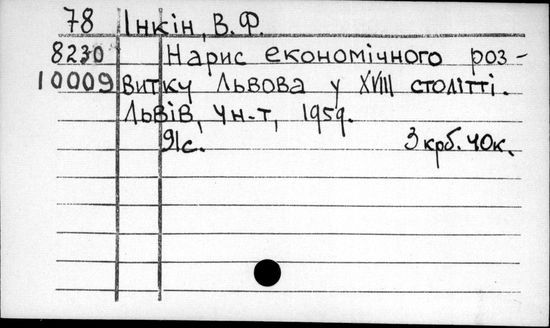 78 Інкін, В.Ф.
8230 Нарис економічного роз-
10009 витку Львова у XVIII столітті.
Львів, Ун-т, 1959.
91с. 3 крб. 40к.